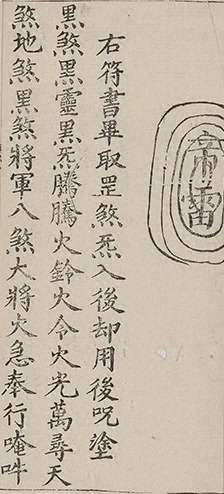 帝雷
右符書畢取罡煞炁入後却用後呪塗
黑煞黑靈黑炁騰騰火鈴火令火光萬尋天
煞地煞黑煞將軍八煞大將火急奉行唵吽